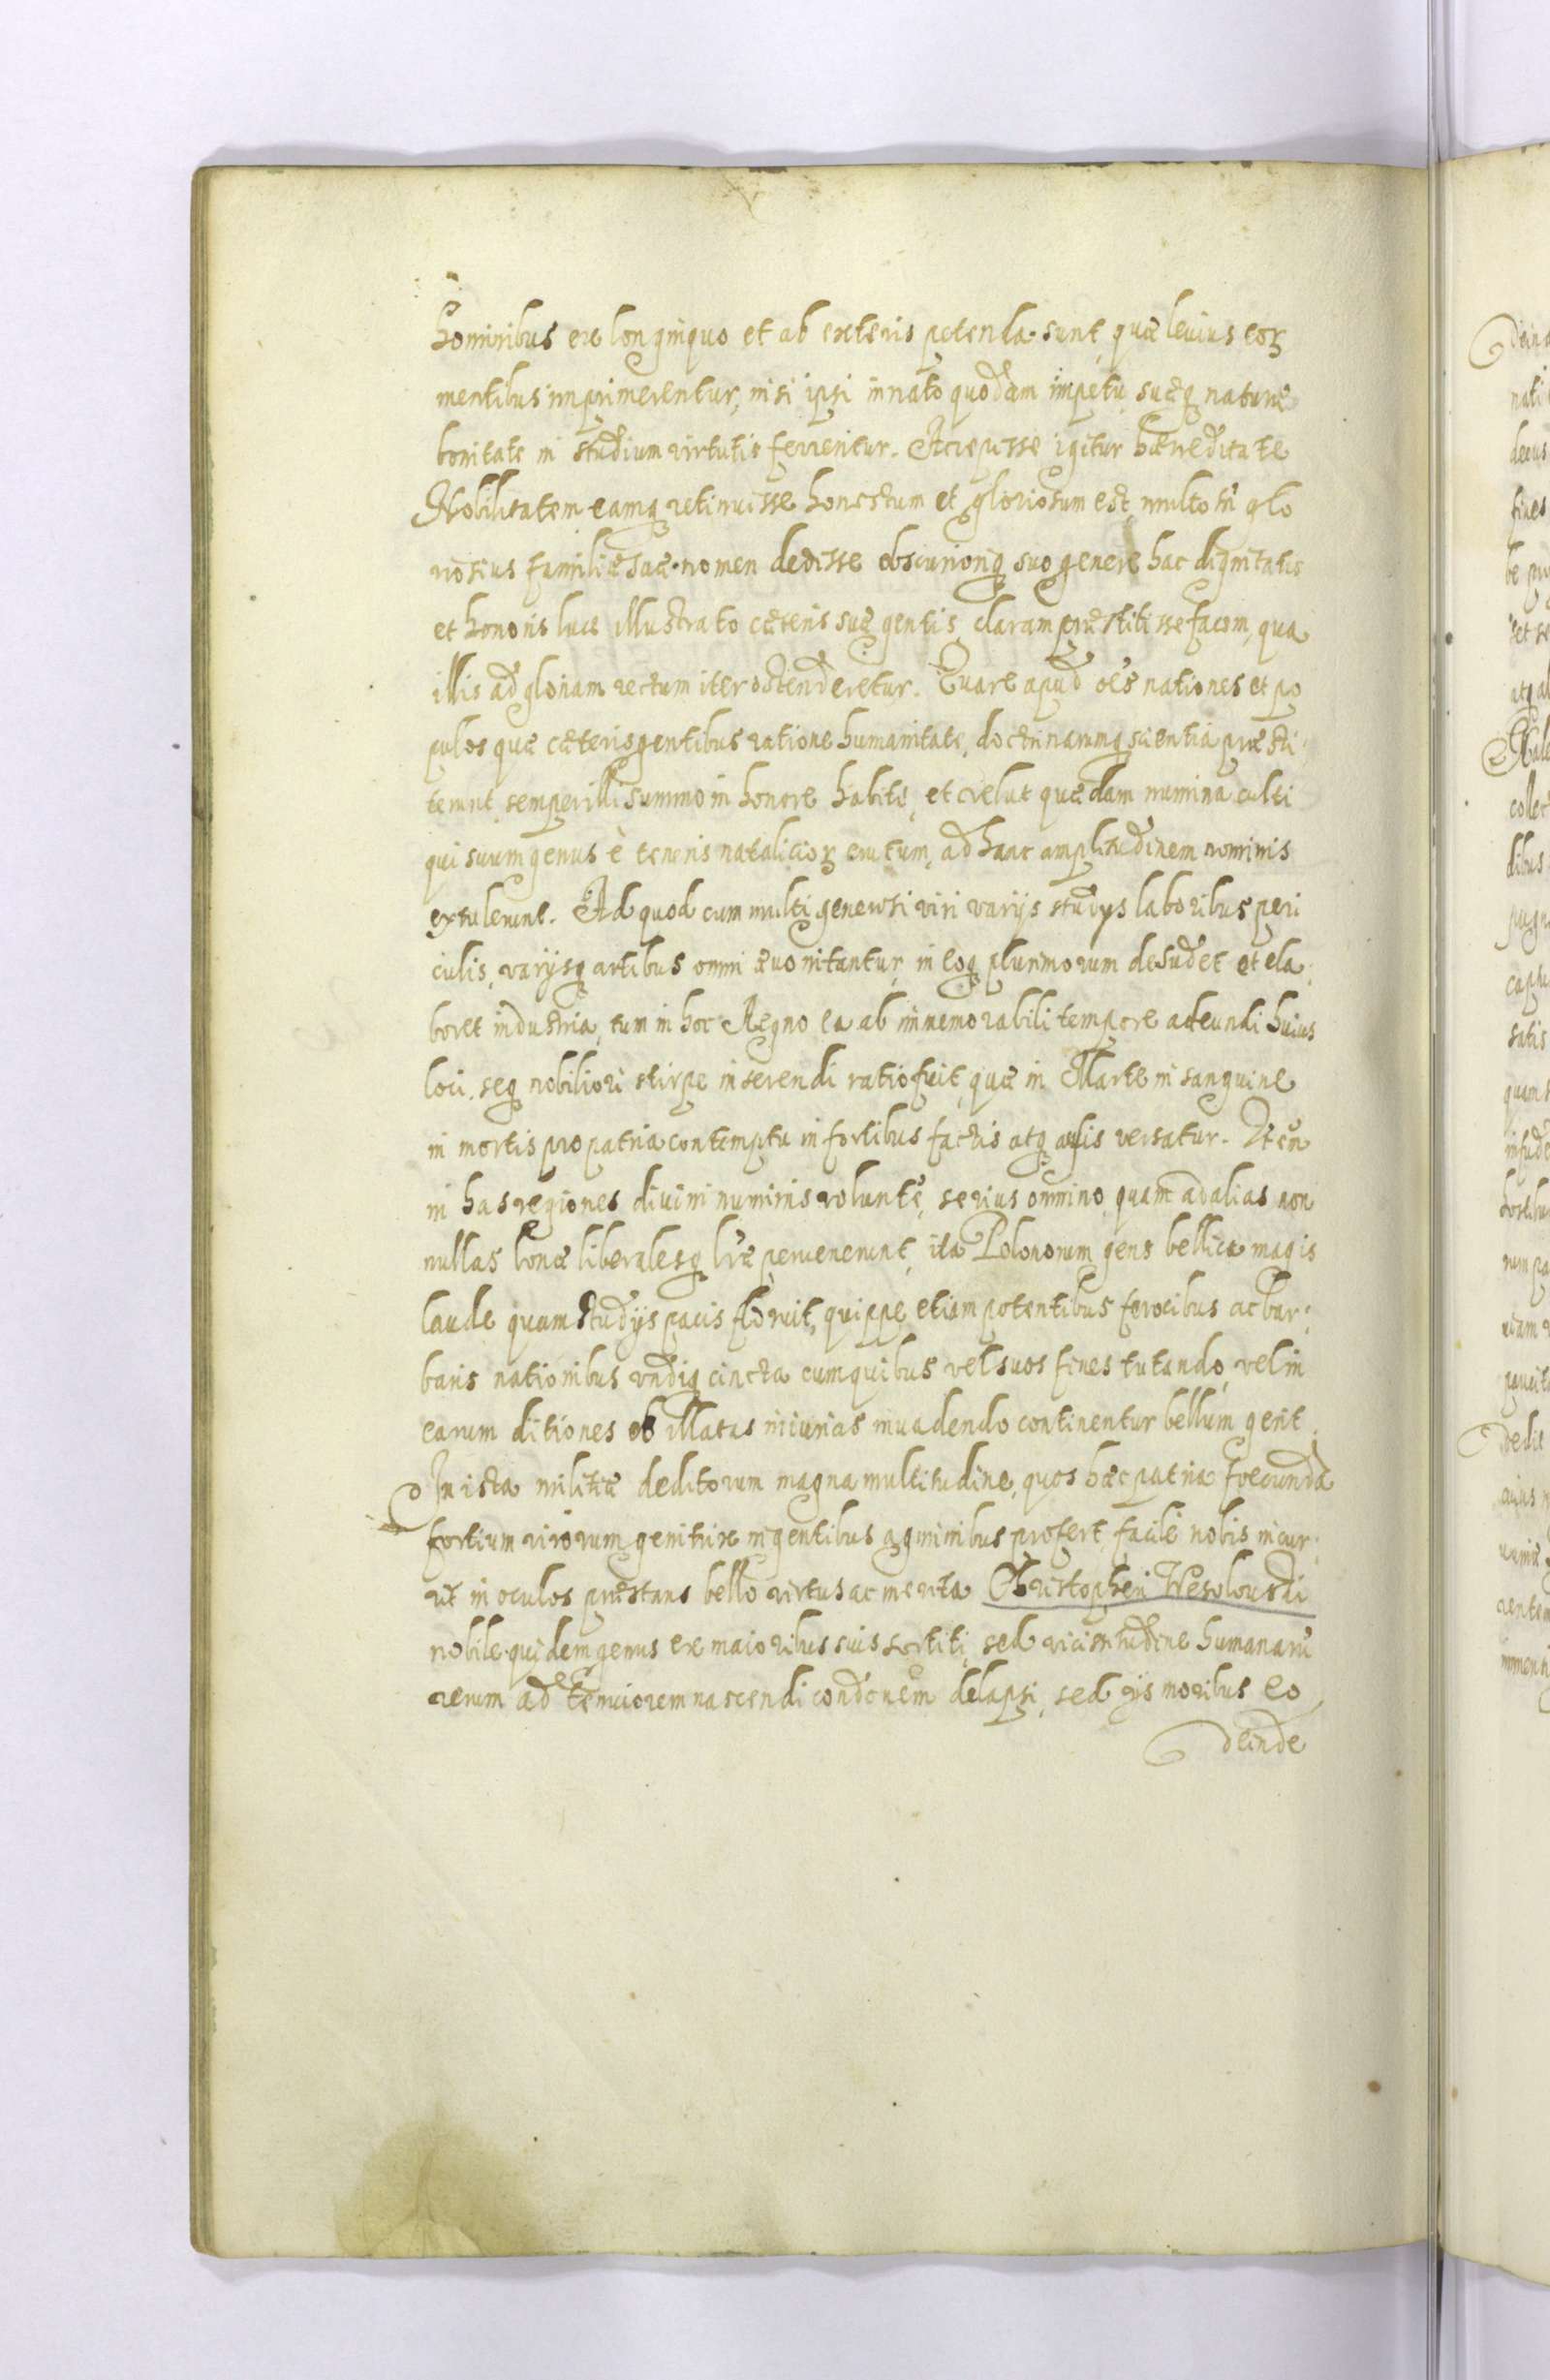 hominibus ex longinquo et ab exteris petenda sunt, quæ leuius eoꝝ
mentibus imprimerentur, nisi ipsi innato quodam impetu, suæq naturæ
bonitate in studium virtutis ferrentur. Accepisse igitur hæreditate
Nobilitatem eamq retinuisse honestum et gloriosum est, multo tñ glo
riosius familiæ suæ nomen dedisse obscuriorιq suo genere hac dignitatis
et honoris luce illustrato cæteris suæ gentis, claram præstitisse facem, qua
illis ad gloriam rectum iter ostenderetur. Quare apud oēs nationes et po
pulos quæ cæteris gentibus ratione humanitate, doctrinarumq scientia præsti
terunt, semper illi summo in honore habiti, et velut quædam numina culti
qui suum genus è teneris natalicioꝝ erutum, ad hanc amplitudinem nominis
extulerunt. Ad quod cum multi generosi viri varijs studys laboribus peri
culis, varijsq artibus omni æuo nitantur, in eoq plurimorum desudet et ela
boret industria, tum in hoc Regno ea ab immemorabili tempore adeundi huius
loci, seq nobiliori stirpe inserendi ratio fuit, quæ in Marte in sanguine
in mortis pro patria contemptu in fortibus factis atq ausis versatur. Ut eñ
in has regiones diuini numinis voluntē, serius omnino quam ad alias non
nullas bonæ liberalesq lr̃æ peruenerunt, ita Polonorum gens bellica magis
laude quam studijs pacis floruit, quippe etiam potentibus ferocibus ac bar
baris nationibus vndiq cincta cum quibus vel suos fines tutando, vel in
earum ditiones ob illatas iniurias inuadendo continentur bellum gerit.
In ista militiæ deditorum magna multitudine, quos hæc patria foecunda
fortium virorum genitrix ingentibus agminibus profert, facile nobis incur
rit in oculos præstans bello virtus ac merita Christopheri Wesolowski
nobile quidem genus ex maioribus suis sortiti, sed vicissitudine humanarũ
rerum ad tenuiorem nascendi condõnem delapsi, sed ijs moribus eo
deinde